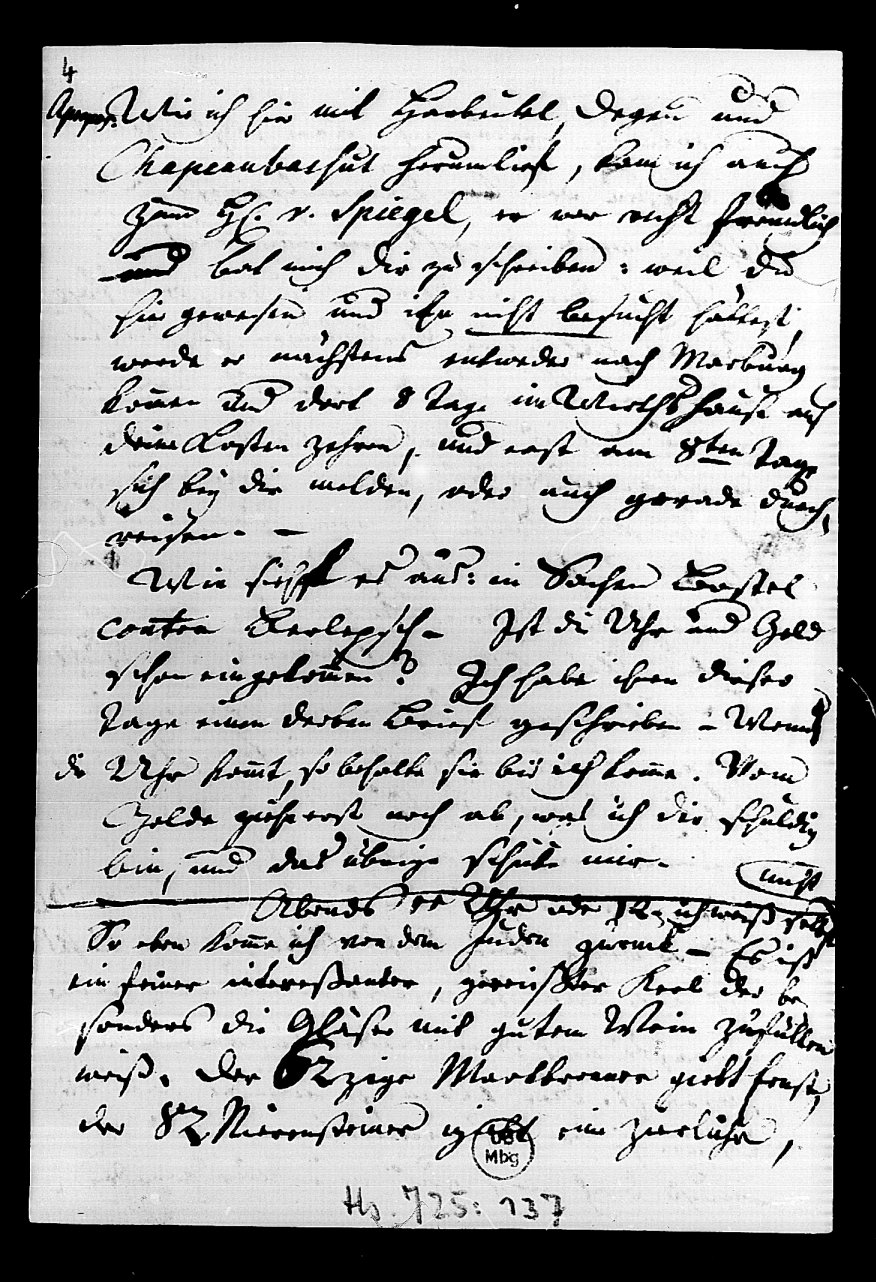 4
Apropos: Wie ich hir mit Haarbeutel, Degen und
Chapeaubashut herumlief, kam ich auch
zum H. v. Spiegel, er war recht freundlich
und bat mich dir zu schreiben: weil du
hir gewesen und ihn nicht besucht hättest,
werde er nächstens entweder nach Marburg
kommen und dort 8 Tage im Wirthshause auf
deine Kosten zehren, und erst am 8ten Tage
sich bey dir melden, oder auch gerade durch,
reisen. —
Wie sieht es aus: in Sachen Bostel
contra Berlepsch — Ist die Uhr und Geld
schon eingekommen? Ich habe ihm dieser
Tage einen derben Brief geschrieben — Wenn
die Uhr kommt, so behalte sie bis ich komme. Vom
Gelde ziehe erst noch ab, was ich dir schuldig
bin, und das übrige schicke mir.
Abends 11 Uhr oder 12, ich weiß selbst nicht
So eben komme ich von dem Juden zurück — Es ist
ein feiner interessanter, gereißter Kerl der be
sonders die Gläser mit gutem Wein zu füllen
weiß. Der 62zige Markbrenner giebt
der 82 Nierensteiner giebt eine zierliche,
UB
Mbg
Hs. 725: 137